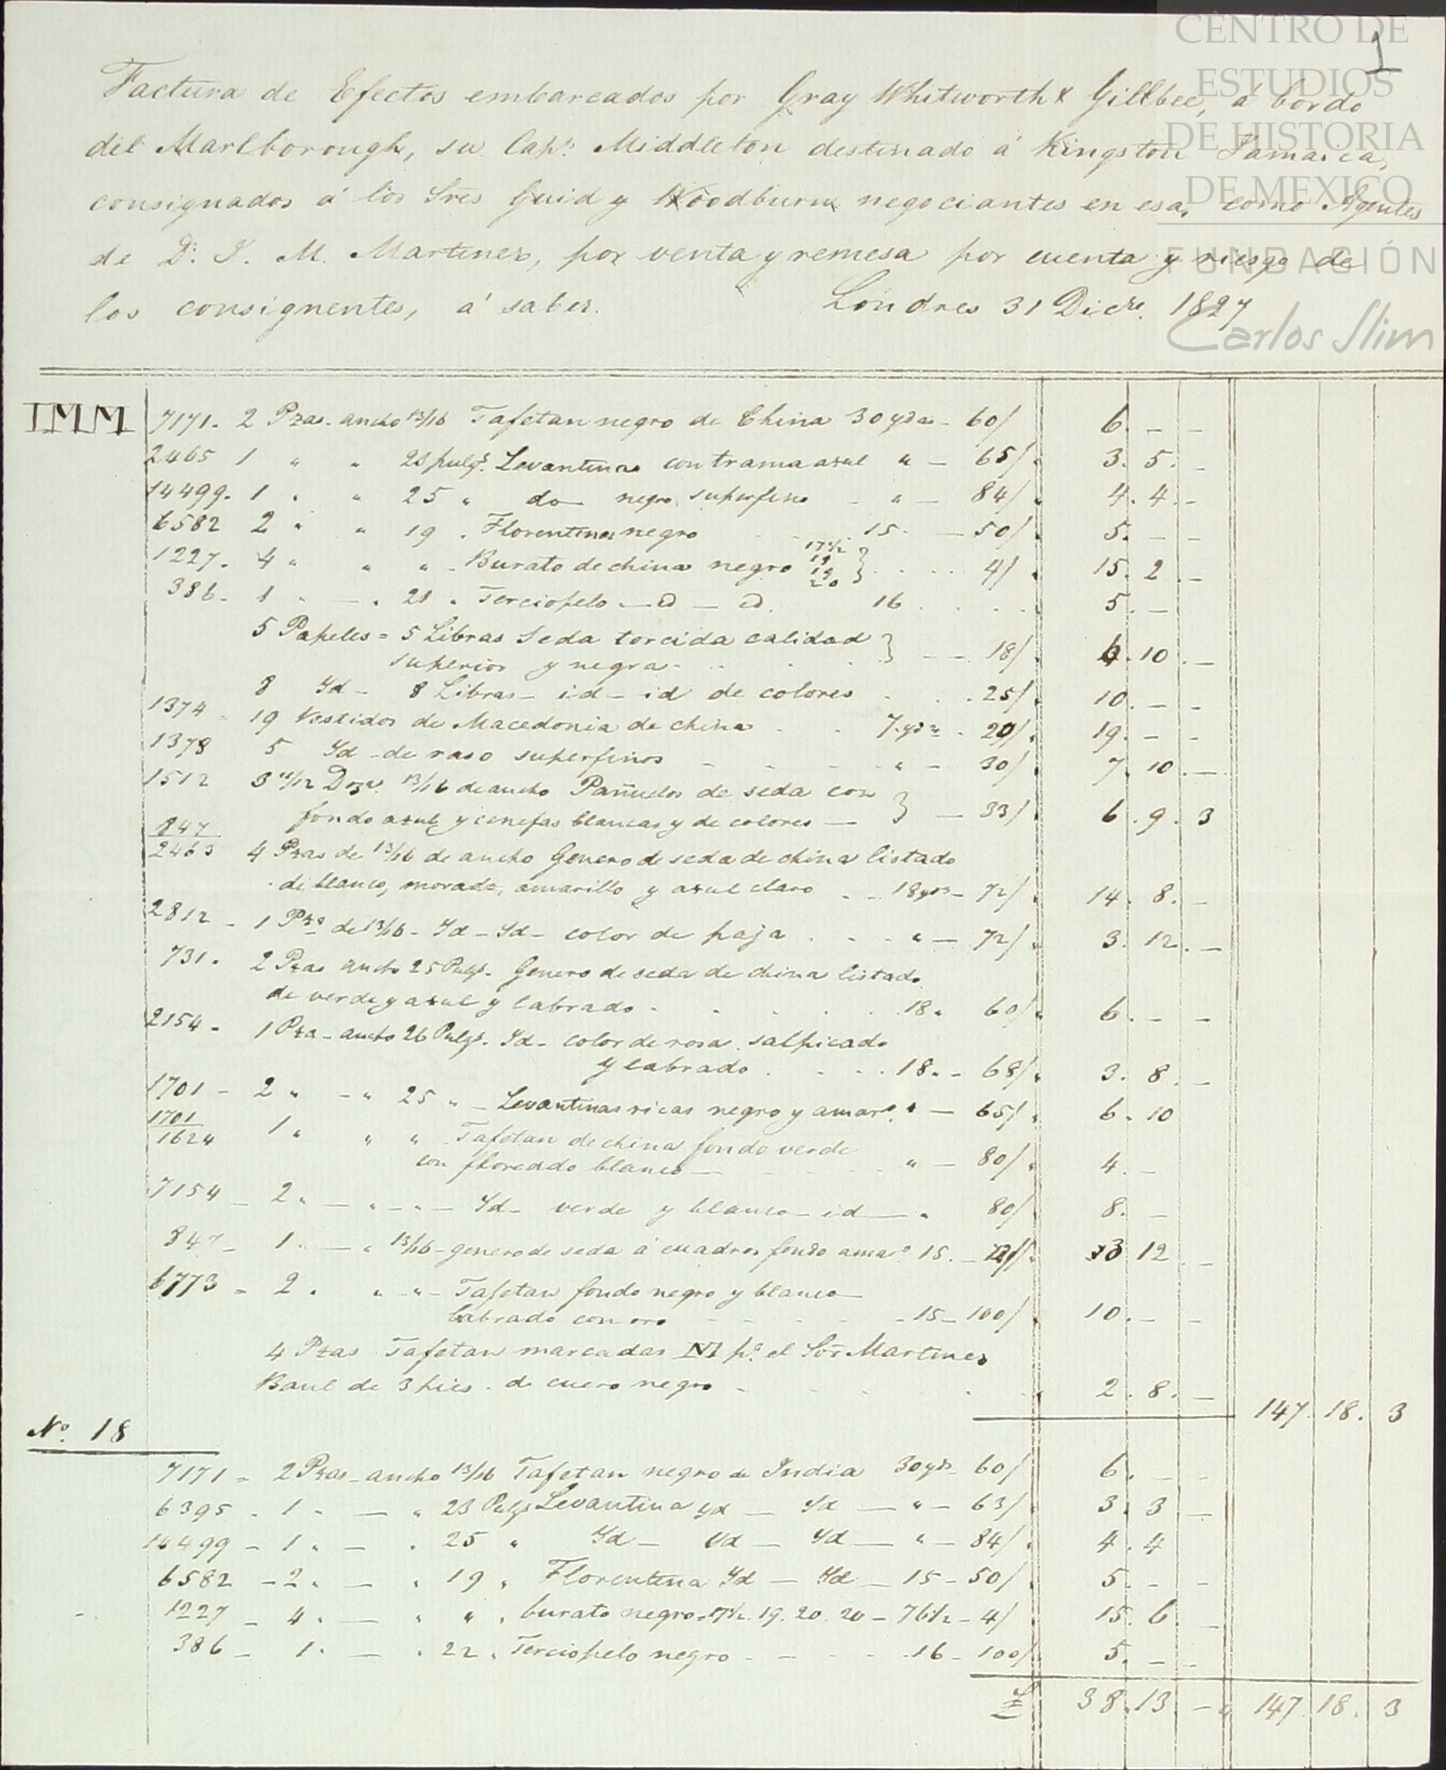 1
CENTRO DE
ESTUDIOS
DE HISTORIA
DE MEXICO
FUNDACIÓN
Carlos Slim
Factura de Efectos embarcados por Gray Whitworth & Gillbee, a bordo
del Marlborough, su Capn. Middleton destinado á Kingston Jamaica,
consignados á los Sres Guid y Woodburn negociantes en esa, como Agentes
de Dn. J. M. Martinez, por venta y remesa por cuenta y riesgo de
los consignentes, á saber. Londres 31 Dicre. 1827
IMM 7171. 2 Pzas. ancho 13/16 Tafetan negro de China 30 yds - 60/ 6. - -
2465 1 " " 23 pulgs. Levantina con trama azul " - 65/ 3. 5. -
14499. 1 " " 25 " do negro superfino " - 84/ 4. 4. -
6582 2 " " 19 . Florentina negro 15. - 50/ 5. - -
1227. 4 " " " - Burato de china negro 17 1/2 19 19 20 } . . . . 4/ 15. 2. -
386. 1 . - . 21 . Terciopelo - id - id. 16 . . . . 5. -
5 Papeles = 5 Libras Seda torcida calidad
superior y negra } - - 18/ 4. 10. -
8 Yd - 8 Libras - id - id de colores . . . 25/ 10. - -
1374 - 19 Vestidos de Macedonia de china . . 7 yds . 20/ 19. - -
1378 5 Yd - de raso superfinos - - - " - 30/ 7. 10. -
1512 3 11/12 Dozs. 13/16 de ancho Pañuelos de seda con
fondo azul y cenefas blancas y de colores } - 33/ 6. 9. 3
847
2463 4 Pzas de 13/16 de ancho Genero de seda de china listado
de blanco, morado, amarillo y azul claro . - 18 yds - 72/ 14. 8. -
2812 - 1 Pza de 13/16 - Yd - Yd - color de paja . . . " - 72/ 3. 12. -
731. 2 Pzas ancho 25 Pulgs. Genero de seda de china listado
de verde y azul y labrado . . . . . 18 . 60/ 6. - -
2154 - 1 Pza - ancho 26 Pulgs. Yd - color de rosa salpicado
y labrado . . . . 18. - 68/ 3. 8. -
1701 - 2 " - " 25 " - Levantinas ricas negro y amaro. " - 65/ 6. 10
1701
1624 1 " " " Tafetan de china fondo verde
con floreado blanco - - - - " - 80/ 4. -
7154 - 2 " - " - " - Yd - verde y blanco - id - " 80/ 8. -
847 - 1. - " 13/16 - genero de seda á cuadros fondo amao. 15. - 72/ 3 12 -
6773 - 2 . " - " - Tafetan fondo negro y blanco
labrado con oro - - - - - 15 - 100/ 10. - -
4 Pzas Tafetan marcadas M pa. el Sor Martinez
Baul de 3 pies . de cuero negro - - - - 2. 8. - 147. 18. 3
No. 18
7171 - 2 Pzas - ancho 13/16 Tafetan negro de India 30 yds - 60/ 6. - -
6395 . 1 . - " 23 Pulgs Levantina Yd - Yd - " - 63/ 3. 3 -
14499 - 1 " - . 25 " Yd - Yd - Yd - " - 84/ 4. 4
6582 - 2 " - " 19 . Florentina Yd - Yd - 15 - 50/ 5. - -
1227 - 4 . - " " . burato negro - 17 1/2. 19. 20. 20 - 76 1/2 - 4/ 15. 6. -
386 - 1. - . 22 . Terciopelo negro . - - - . 16 - 100/ 5. - -
£ 38. 13. - " 147. 18. 3